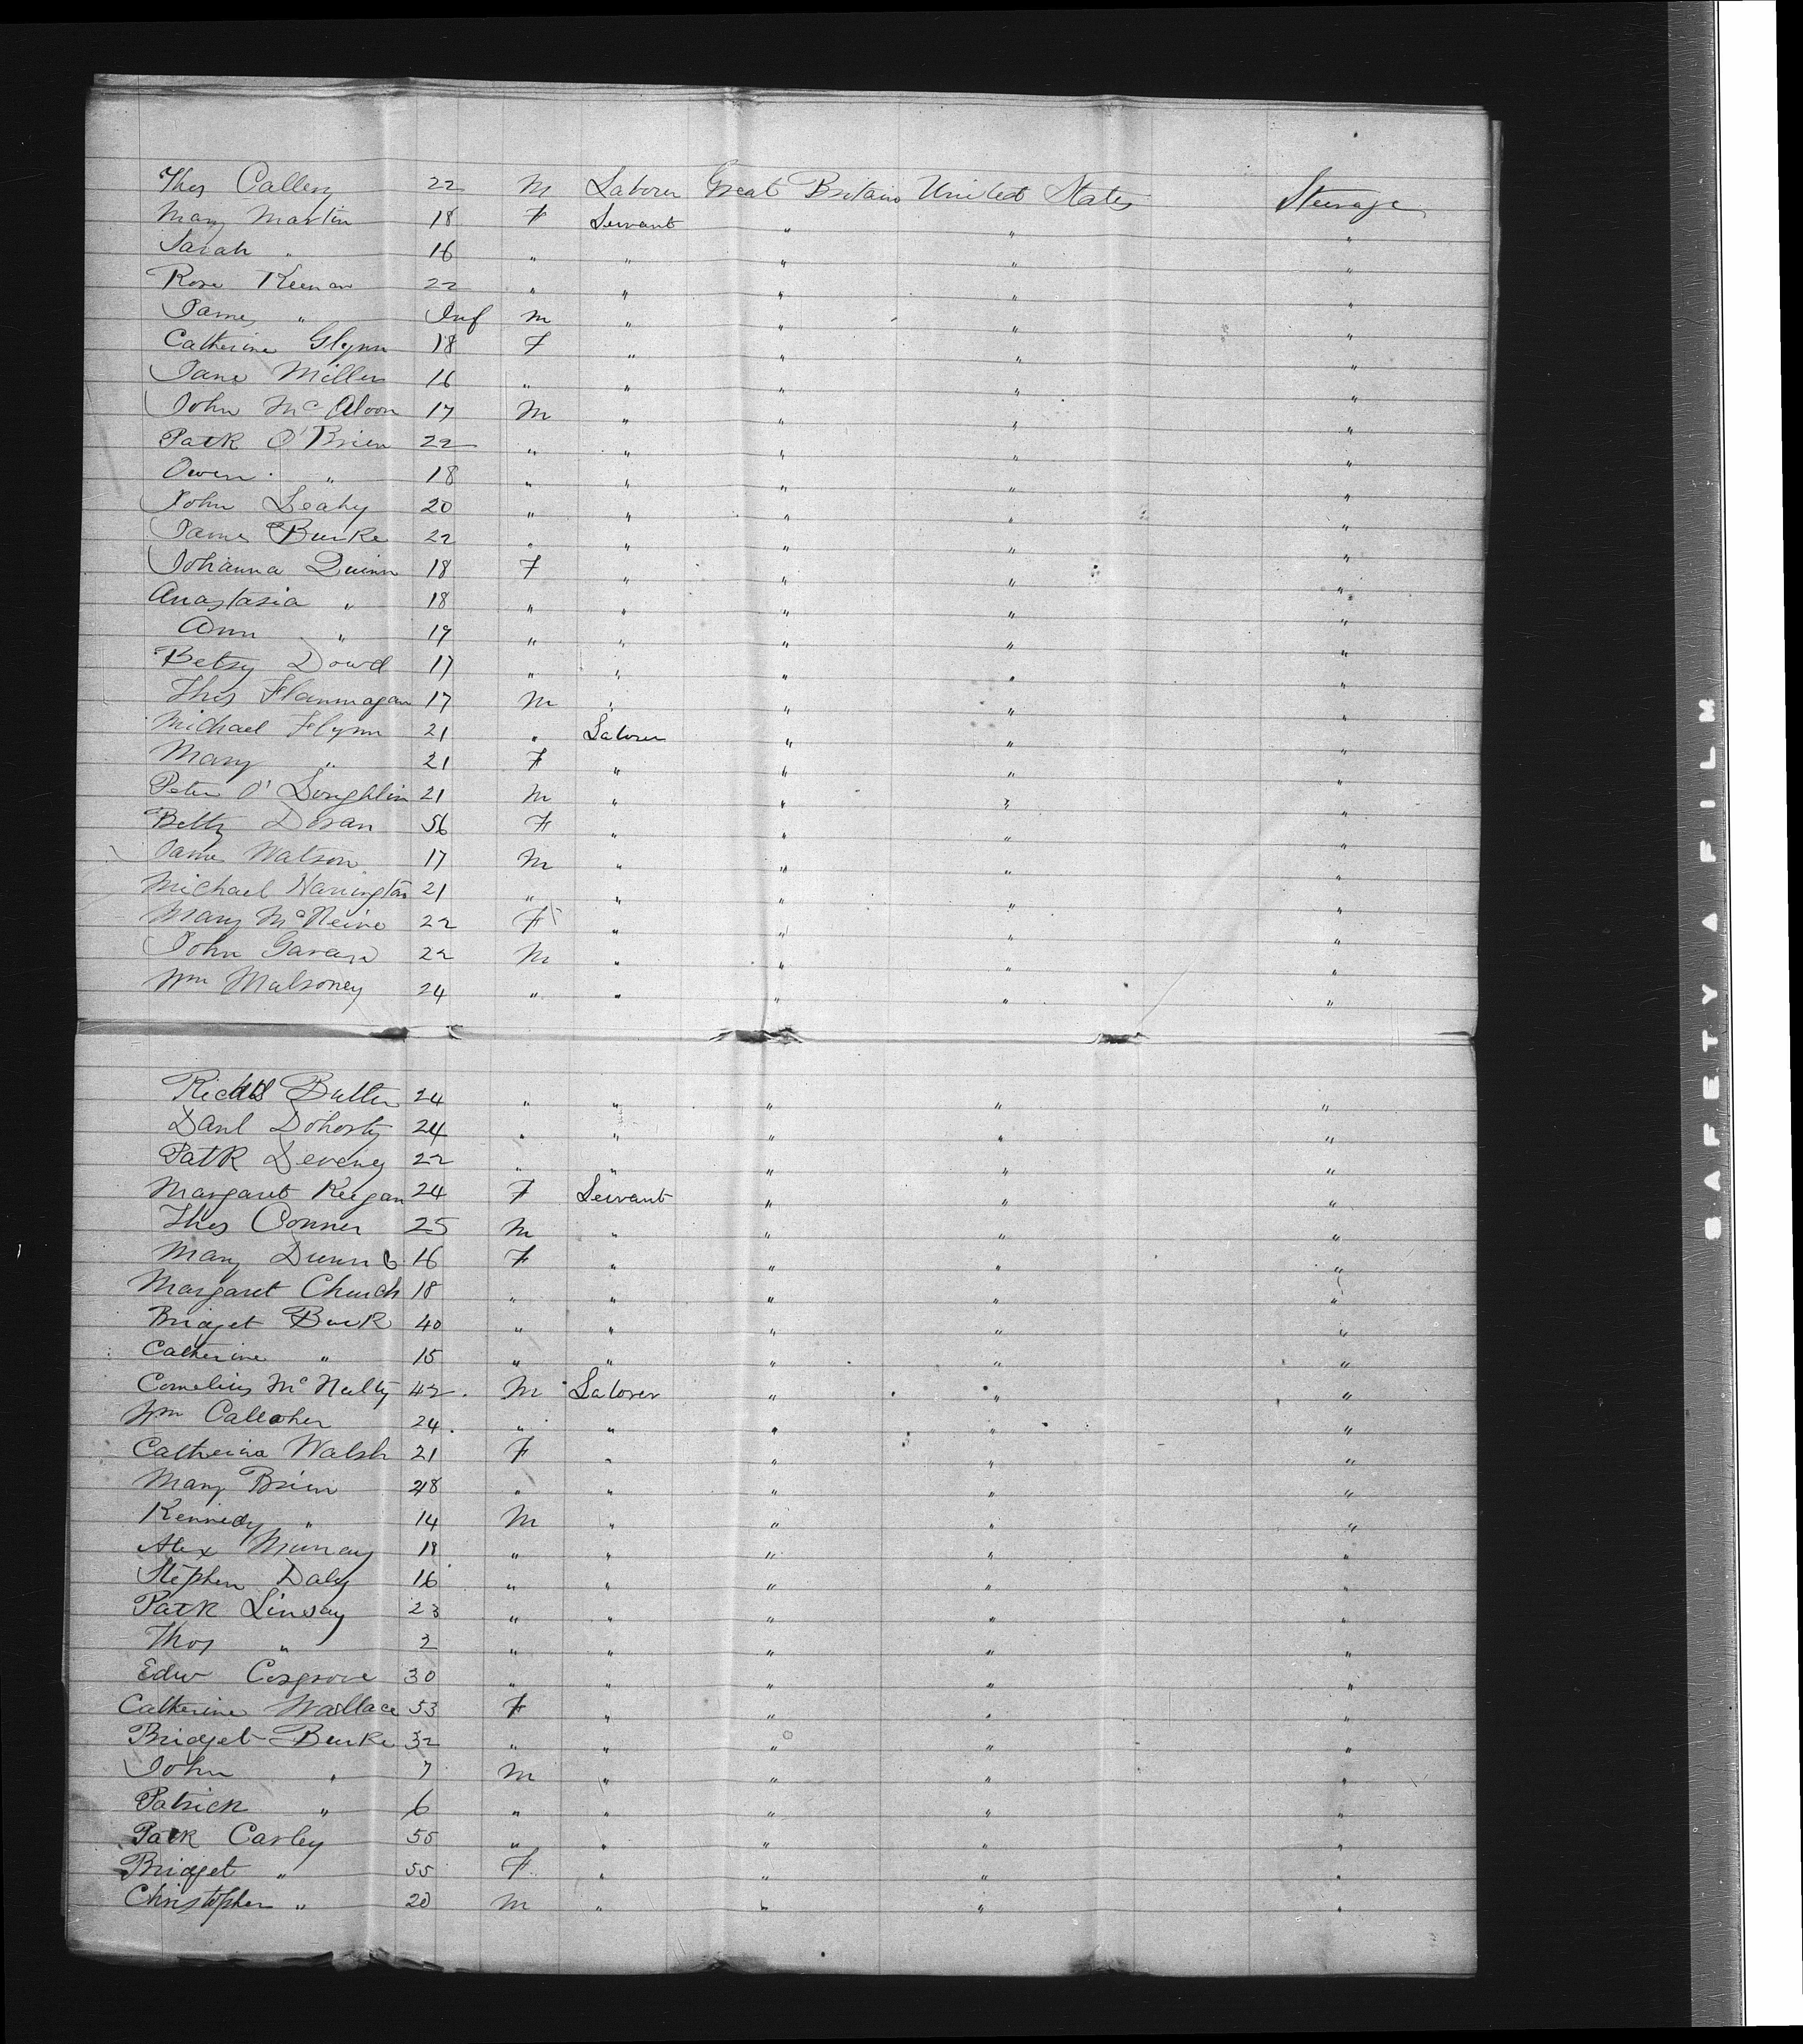 Thos Callen 22 M Laborer Great Britain United States Steerage
Mary Martin 18 F Servant " " "
Sarah " 16 " " " " "
Rose Keenan 22 " " " " "
James " Inf M " " " "
Catherine Glynn 18 F " " " "
Jane Miller 16 " " " " "
John McAloon 17 M " " " "
Patk O'Brien 22 " " " " "
Owen " 18 " " " " "
John Leahy 20 " " " " "
James Burke 22 " " " " "
Johanna Quinn 18 F " " " "
Anastasia " 18 " " " " "
Ann " 19 " " " " "
Betsy Dowd 17 " " " " "
Thos Flannagan 17 M " " " "
Michael Flynn 21 " Laborer " " "
Mary " 21 F " " " "
Peter O'Loughlin 21 M " " " "
Betty Doran 56 F " " " "
James Watson 17 M " " " "
Michael Harrington 21 " " " " "
Mary 22 F " " " "
John 22 M " " " "
Wm Mulroney 24 " " " " "
Richd Butler 24 " " " " "
Danl Doherty 24 " " " " "
Patk Deveney 22 " " " " "
Margaret Keegan 24 F Servant " " "
Thos Conner 25 M " " " "
Mary Dunn 16 F " " " "
Margaret Church 18 " " " " "
Bridget Burk 40 " " " " "
Catherine " 15 " " " " "
Cornelius McNulty 42 M Laborer " " "
Wm Callaher 24 " " " " "
Catherine Walsh 21 F " " " "
Mary Brien 48 " " " " "
Kennedy " 14 M " " " "
Alex Murray 18 " " " " "
Stephen Daly 16 " " " " "
Patk Linsay 23 " " " " "
Thos " 2 " " " " "
Edw Cosgrove 30 " " " " "
Catherine Wallace 53 F " " " "
Bridget Burke 32 " " " " "
John " 7 M " " " "
Patrick " 6 " " " " "
Patk Carley 55 " " " " "
Bridget " 55 F " " " "
Christopher " 20 M " " " "
SAFETY A FILM